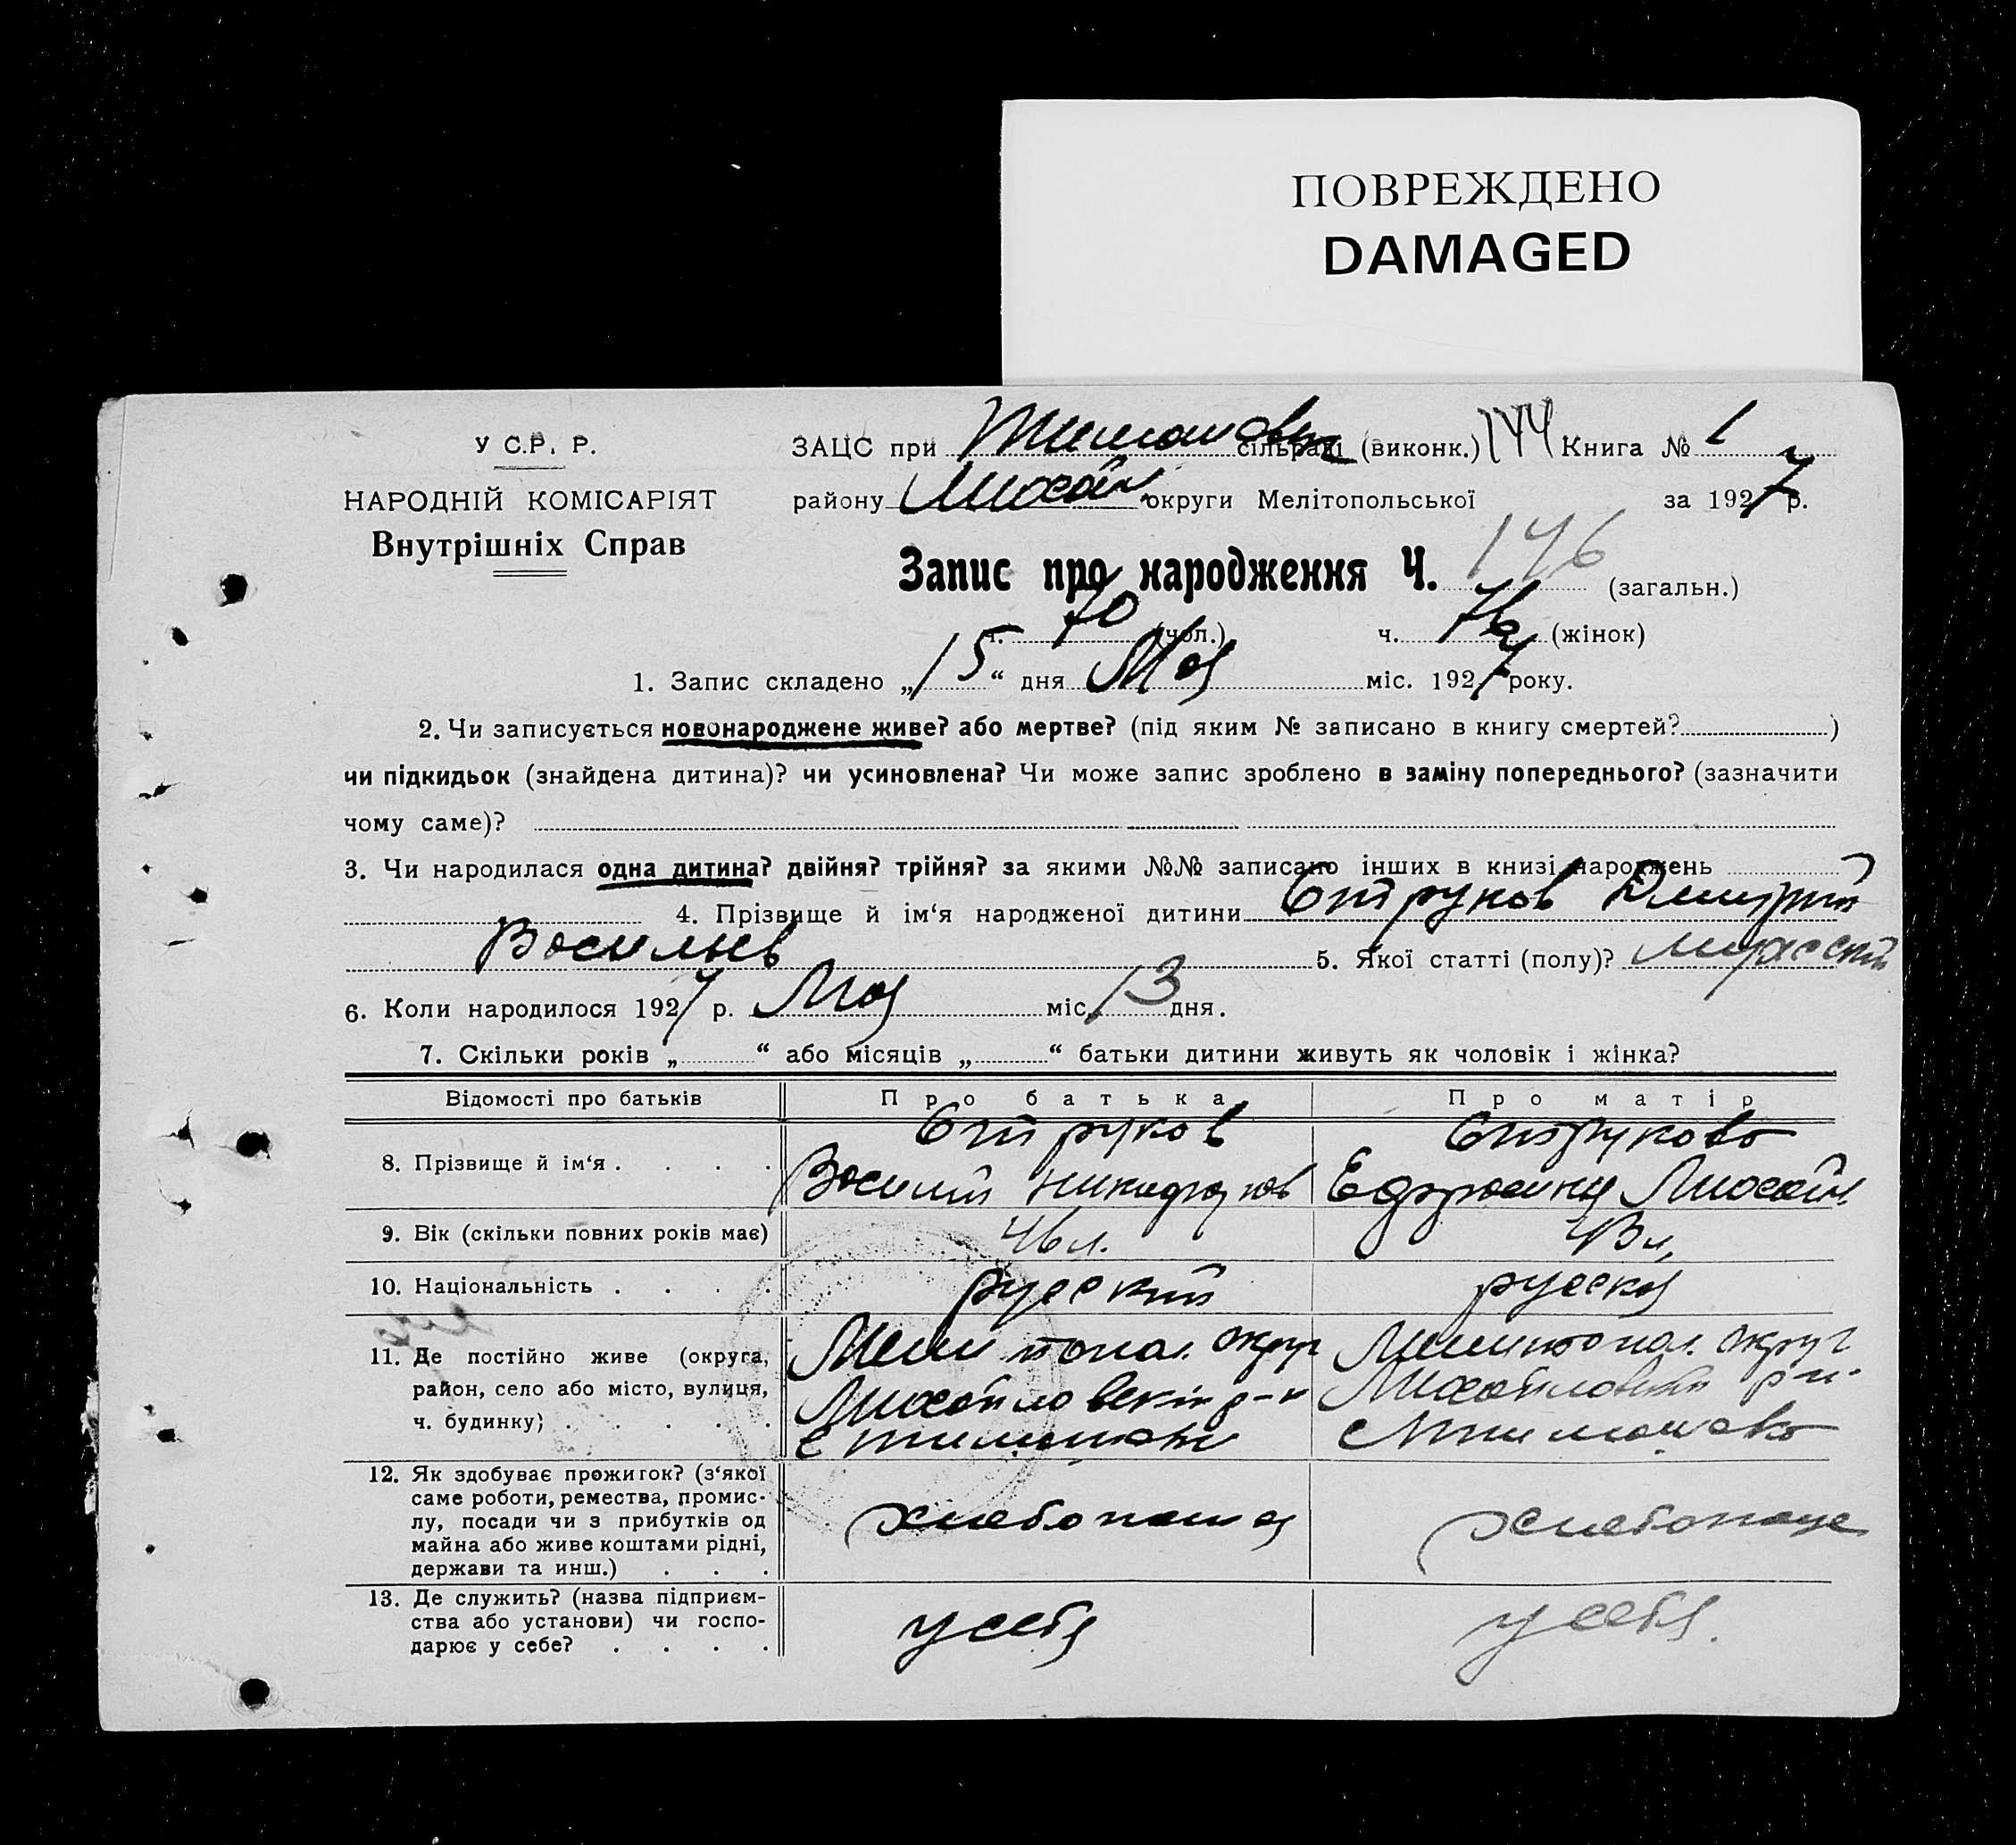 ПОВРЕЖДЕНО
DAMAGED
У С.Р. Р.
НАРОДНІЙ КОМІСАРІЯТ
Внутрішніх Справ
ЗАЦС при Тимошовк сільраді (виконк.) 144 Книга № 1
району Михайл. округи Мелітопольської за 1927 р.
Запис про народження Ч. 146 (загальн.)
ч. 70 (чол.) ч. 76 (жінок)
1. Запис складено „15“ дня Мая міс. 1927 року.
2. Чи записується новонароджене живе? або мертве? (під яким № записано в книгу смертей? )
чи підкидьок (знайдена дитина)? чи усиновлена? Чи може запис зроблено в заміну попереднього? (зазначити
чому саме)?
3. Чи народилася одна дитина? двійня? трійня? за якими №№ записано інших в книзі народжень ?
4. Прізвище й ім‘я народженої дитини Струков Дмитрий
Васильев 5. Якої статті (полу)? мужской
6. Коли народилося 1927 р. Мая міс. 13 дня.
7. Скільки років „ “ або місяців „ “ батьки дитини живуть як чоловік і жінка?
Відомості про батьків Про батька Про матір
8. Прізвище й ім‘я . . . . Струков Струкова
Василий Никифоров Ефросиния Михайл.
9. Вік (скільки повних років має) 46 л. 43 л.
10. Національність . . . . русский русская
11. Де постійно живе (округа, Мелитопол. округ Мелитопол. округ
район, село або місто, вулиця, Михайловский р-н Михайловский р-н.
ч. будинку) . . . . . С Тимошовка С Тимошовка
12. Як здобуває прожиток? (з‘якої
саме роботи, ремества, промис-
лу, посади чи з прибутків од хлебопашец хлебопаше
майна або живе коштами рідні,
держави та инш.) . . .
13. Де служить? (назва підприєм-
ства або установи) чи госпо- у себя у себя.
дарює у себе? . . . .